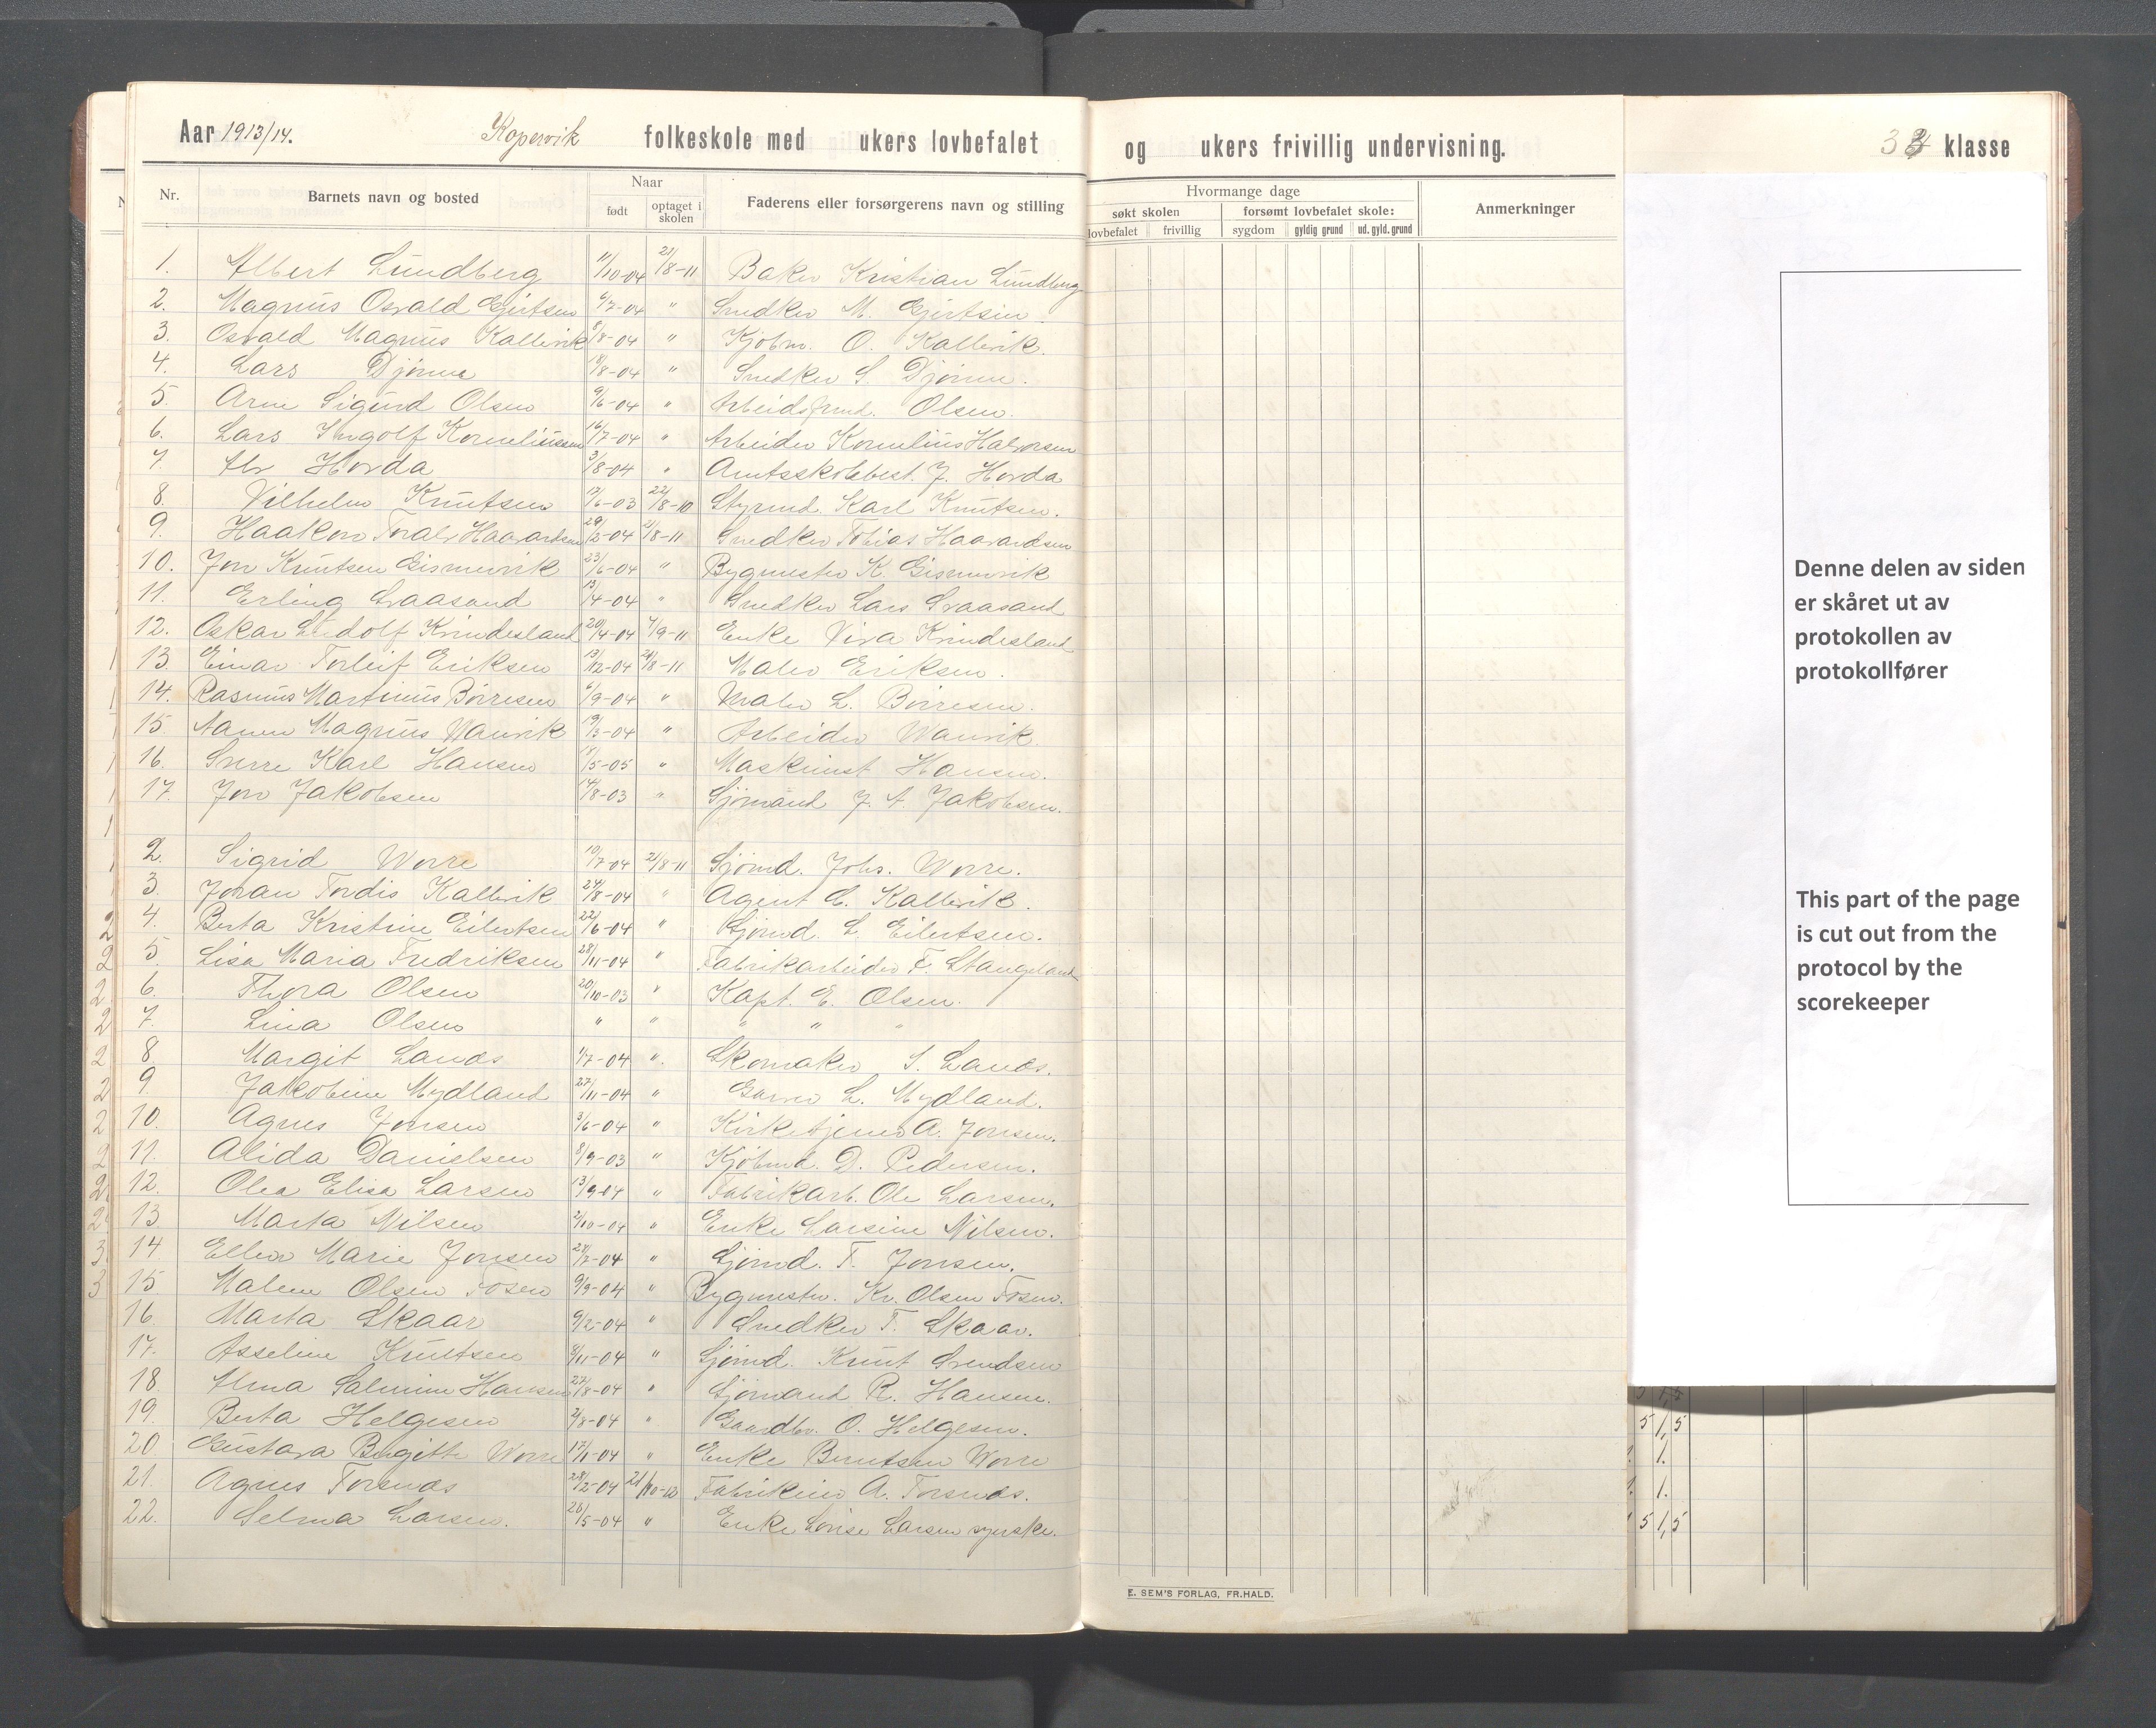 Aar 1913/14. Kopervik folkeskole med ukers lovbefalet og ukers frivillig undervisning. klasse
Nr. Barnets navn og bosted Naar Faderens eller forsørgerens navn og stilling Hvormange dage Anmerkninger
født optaget i skolen søkt skolen forsømt lovbefalet skole:
lovbefalet frivillig sygdom gyldig grund ud. gyld. grund
1. Albert Lundberg 11/10-04 21/8-11 Baker Kristian Lundberg
2. Magnus Osvald Gjertsen 6/7-04 " Snedker M. Gjertsen.
3. Osvald Magnus Kallevik 8/8-04 " Kjøbm. O. Kallevik.
4. Lars Djønne /8-04 " Snedker S. Djønne.
5. Arne Sigurd Olsen 9/6-04 " Arbeidsfrmd. Olsen.
6. Lars Ingolf Korneliussen 16/7-04 " Arbeider Kornelius Halvorsen
7. Alv Horda 3/8-04 " Amtsskolebest. J. Horda
8. Vilhelm Knutsen 17/6-03 22/8-10 Styrmd. Karl Knutsen.
9. Haakon Toralv Haavardsen 29/2-04 21/8-11 Snedker Tobias Haavardsen
10. Jon Knutsen Gismervik 23/6-04 " Bygmester K. Gismervik
11. Erling Svaasand 13/4-04 " Snedker Lars Svaasand
12. Oskar Ludolf Krindesland 20/4-04 4/9-11 Enke Vira Krindesland
13. Einar Torleif Eriksen 13/12-04 21/8-11 Maler Eriksen.
14. Rasmus Martinus Børresen 6/9-04 " Maler L. Børresen.
15. Magnus Wanvik 19/3-04 " Arbeider Wanvik
16. Sverre Karl Hansen /5-05 " Maskinist Hansen.
17. Jon Jakobsen 14/8-03 " Sjømand J. A. Jakobsen.
2. Sigrid Worre 10/7-04 21/8-11 Sjømd. Johs. Worre.
3. Joran Tordis Kallevik 24/8-04 " Agent C. Kallevik.
4. Berta Kristine Eilertsen 22/6-04 " Sjømd. L. Eilertsen.
5. Lisa Maria Fredriksen 28/11-04 " Fabrikarbeider F. Stangeland
6. Thora Olsen 20/10-03 " Kapt. E. Olsen.
7. Lina Olsen " " " " "
8. Margit Lanes 1/7-04 " Skomaker S. Lanes.
9. Jakobine Mydland 27/11-04 " Garver L. Mydland.
10. Agnes Jonsen 3/6-04 " Kirketjener A. Jonsen.
11. Alida Danielsen 8/9-03 " Kjøbmd. D. Pedersen.
12. Olea Elisa Larsen 13/9-04 " Fabrikarb. Ole Larsen.
13. Marta Nilsen 2/10-04 " Enke Larsine Nilsen.
14. Ellen Marie Jonsen /2-04 " Sjømd. T. Jonsen.
15. Malene Olsen Fosen 9/9-04 " Bygmester. Kr. Olsen Fosen.
16. Marta Skaar 9/2-04 " Snedker T. Skaar.
17. Asseline Knutsen 8/11-04 " Sjømd. Knut Svendsen
18. Alma Salmine Hansen 22/8-04 " Sjømand R. Hansen.
19. Berta Helgesen 2/8-04 " Gaardbr. O. Helgesen.
20. Gustava Birgitte Worre 17/1-04 " Enke Berntsen Worre
21. Agnes Torsnes 28/2-04 21/10-12 A. Torsnes.
22. Selma Larsen. 26/5-04 " Enke Lovise Larsen syerske.
E. SEM'S FORLAG, FR.HALD.
Denne delen av siden
er skåret ut av
protokollen av
protokollfører
This part of the page
is cut out from the
protocol by the
scorekeeper
5 1,5
1.
1.
5 1,5